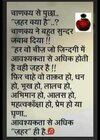 चाणक्य से पुछा..
"जहर क्या है"..?
चाणक्य ने बहुत सुन्दर
जबाब दिया !!
"हर वो चीज जो जिन्दगी में
आवश्यकता से अधिक होती
है वही जहर है !!
फिर चाहे वो ताकत हो, धन
हो, भूख हो, लालच हो,
अभिमान हो, आलस हो,
महत्वकाँक्षा हो, प्रेम हो या
घृणा..
आवश्यकता से अधिक
"जहर" ही है.